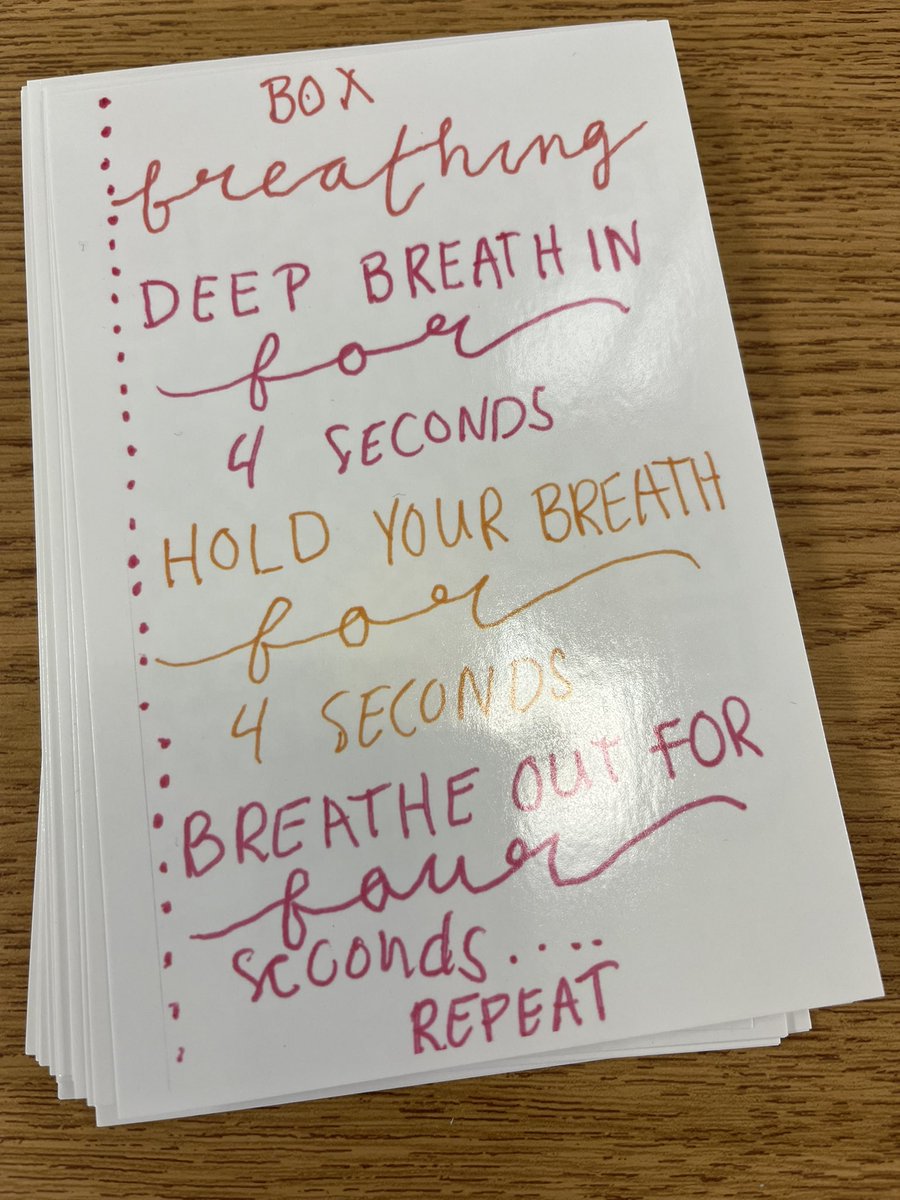 BOX
breathing
DEEP BREATH IN
for
4 SECONDS
HOLD YOUR BREATH
for
4 SECONDS
BREATHE OUT FOR
four
seconds....
REPEAT